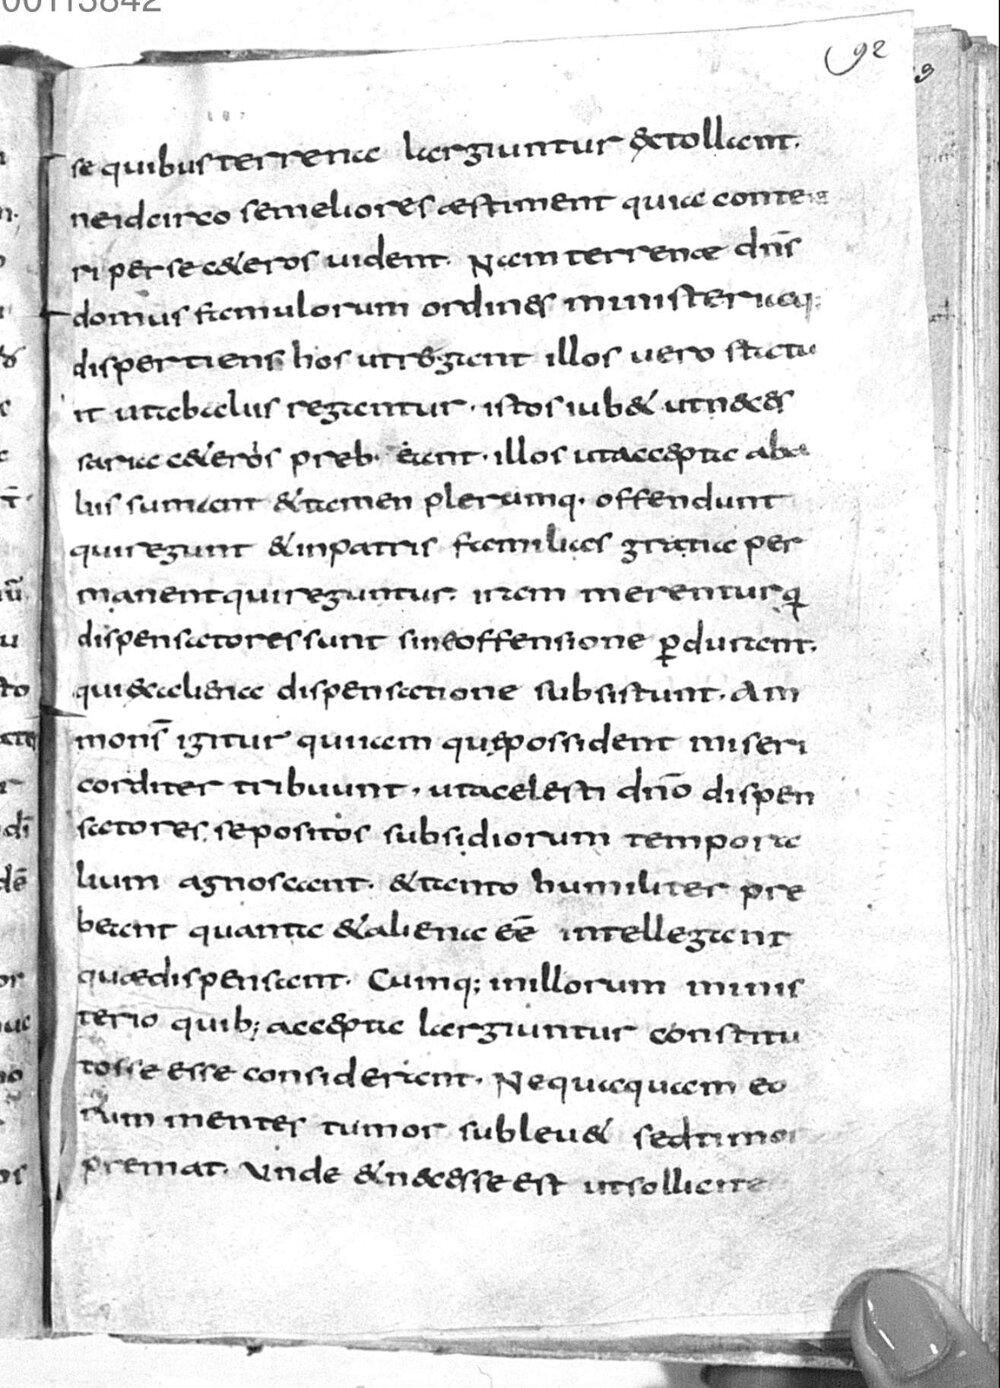 00113842
92
se quibus terrena largiuntur &tollant.
neidcirco semeliores æstiment quia conte
ri per se c&eros uident. Nam terrenæ dn̄s
domus famulorum ordines ministeriaq;
dispertiens hos utregant illos uero statu
it utabaliis regantur. istos iub& utneces
saria c&eris prebeant. illos utaccepta aba
liis sumant &tamen plerumq. offendunt
quiregunt &inpatris familias gratia per
manentquireguntur. iram merenturq
dispensatores sunt sineoffensione ꝑdurant.
quiexaliena dispensatione subsistunt. Am
mons̄ igitur quiiam quępossident miseri
corditer tribuunt. utacelesti dn̄o dispen
satores sepositos subsidiorum tempora
lium agnoscant. &tanto humiliter pre
beant quanta &aliena eē intellegant
quædispensant. Cumq; inillorum minis
terio quib; accepta largiuntur constitu
tosse esse considerant. Nequaquam eo
rum mentes tumor subleu& sedtimor
premat. Unde &necesse est utsollicite